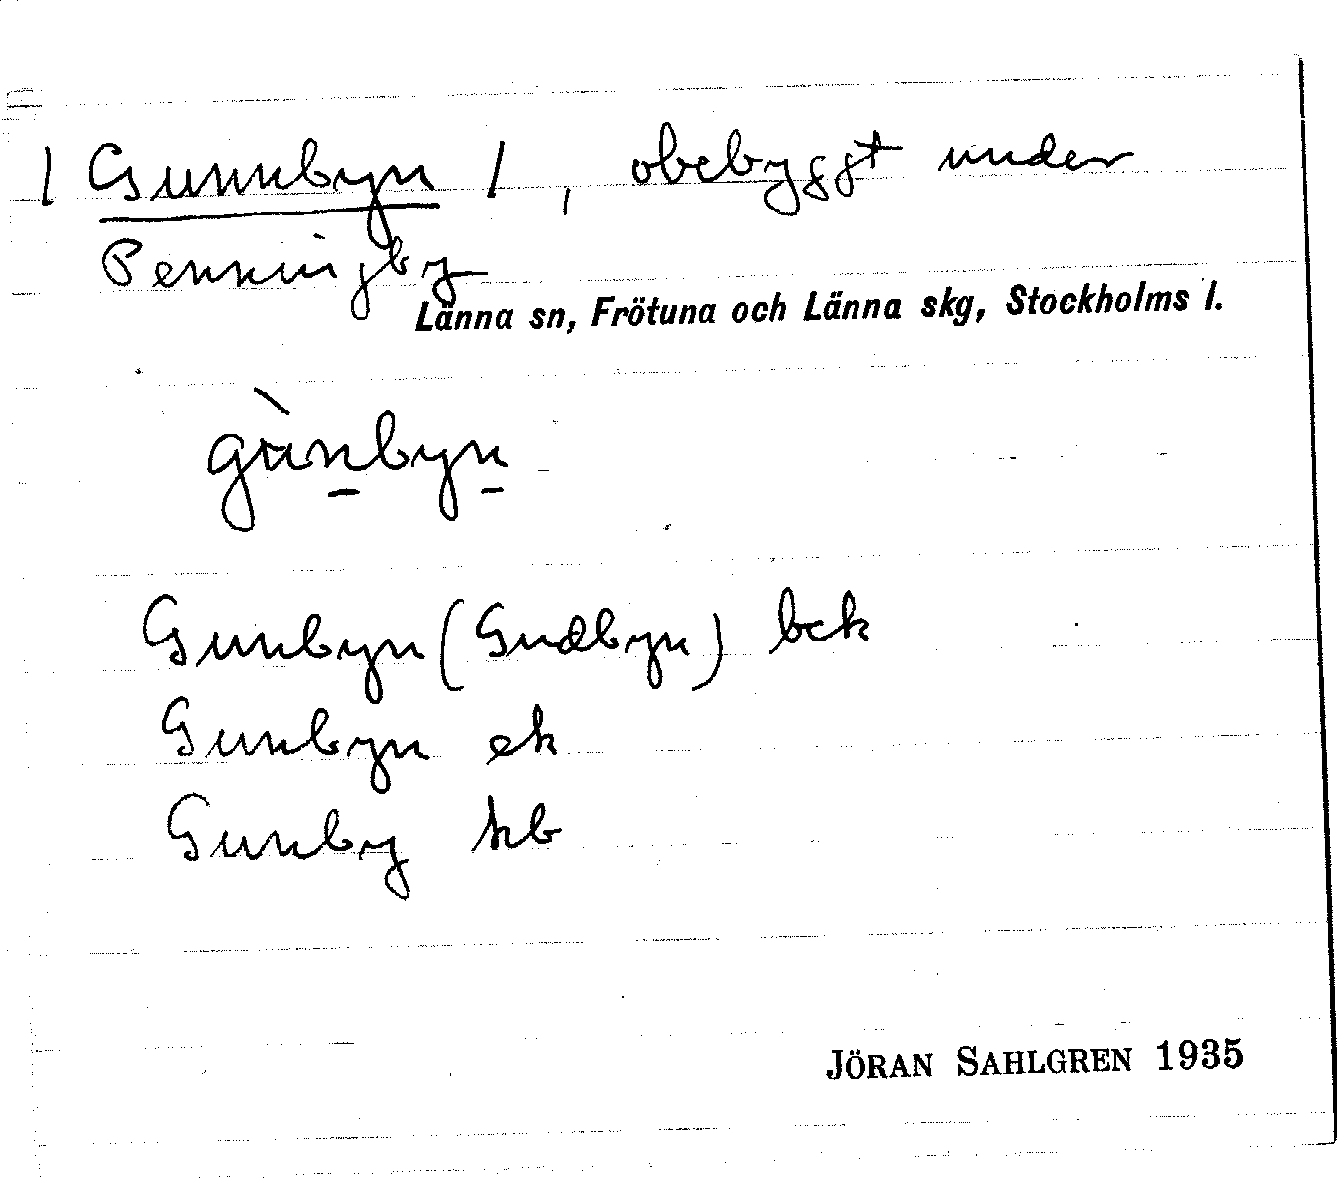 / Gunnbyn / , obebyggt under
Penningby
Länna sn, Frötuna och Länna skg, Stockholms l.
gùnbyn
Gunbyn (Gudbyn) bek
Gunbyn ek
Gunby kb
JÖRAN SAHLGREN 1935